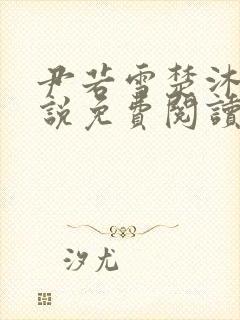 尹若雪楚沐
說免費閱讀
汐尤